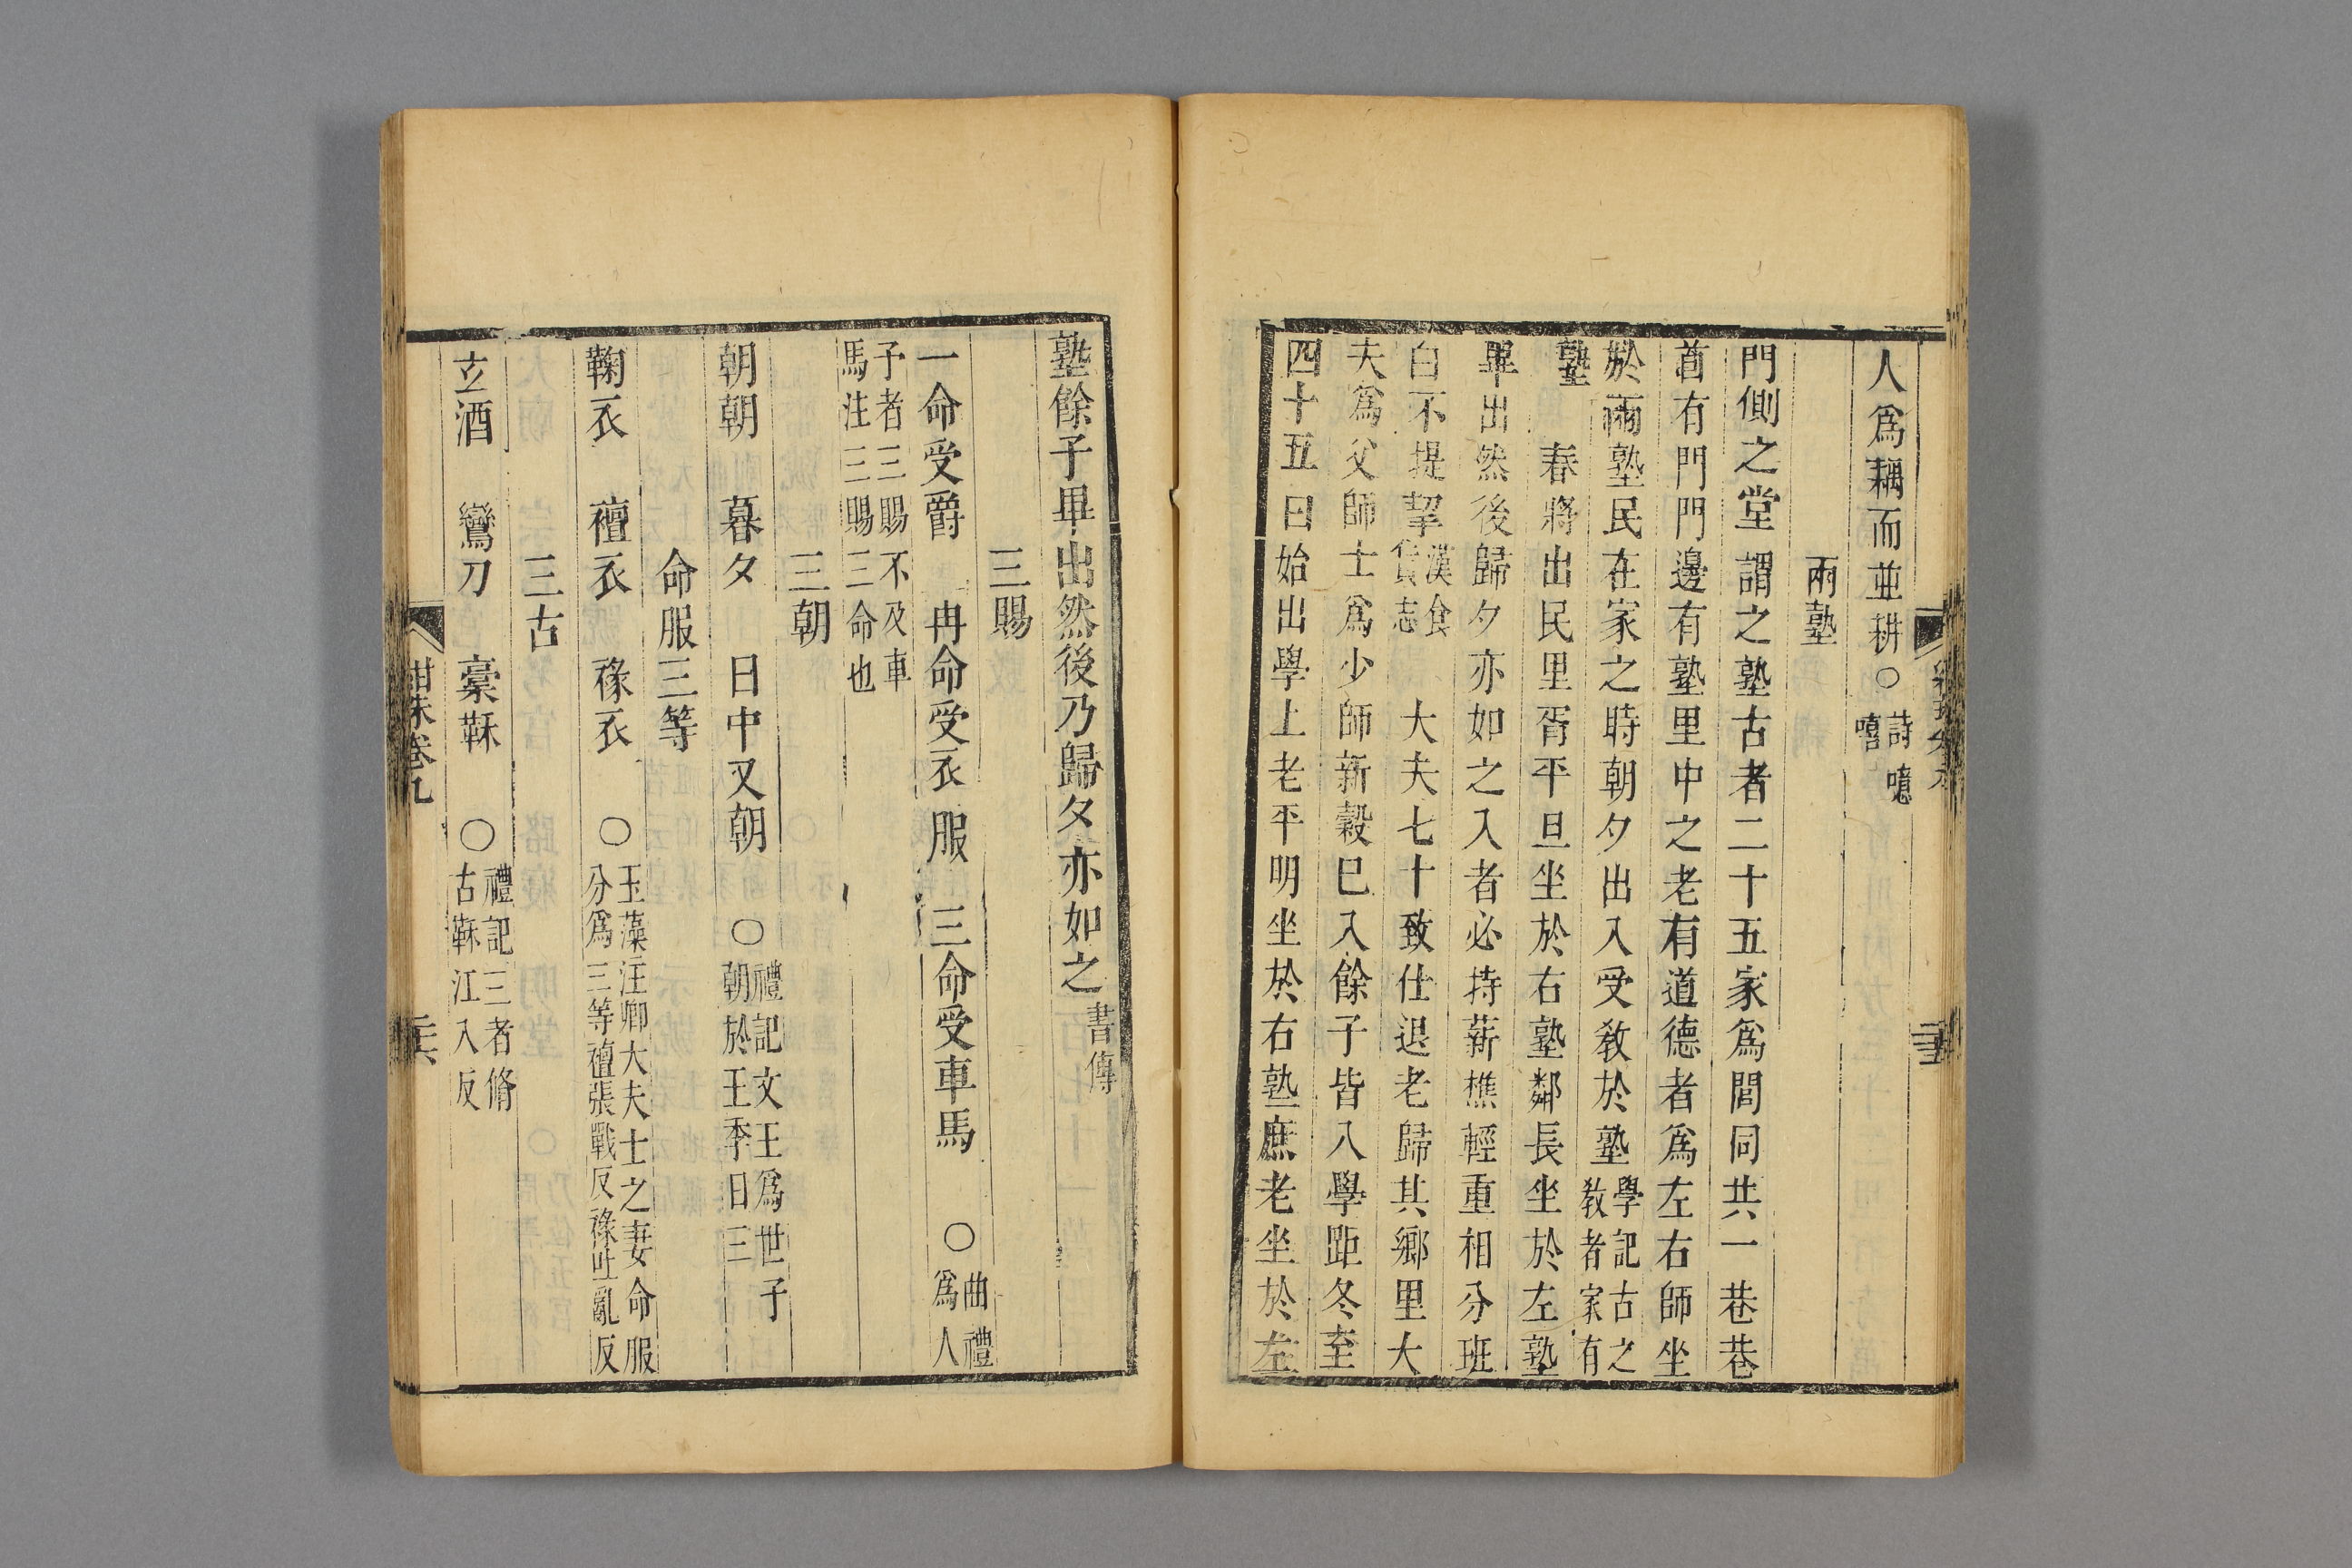 人爲耦而並耕○詩噫嘻
兩塾
門側之堂謂之塾古者二十五家爲閭同共一巷巷
首有門門邊有塾里中之老有道德者爲左右師坐
於兩塾民在家之時朝夕出入受敎於塾學記古之敎者家有
塾　春將出民里胥平旦坐於右塾鄰長坐於左塾
畢出然後歸夕亦如之入者必持薪樵輕重相分班
白不提挈漢食貨志　大夫七十致仕退老歸其鄉里大
夫爲父師士爲少師新穀巳入餘子皆入學距冬至
四十五日始出學上老平明坐於右塾庶老坐於左
塾餘子畢出然後乃歸夕亦如之書傳
三賜
一命受爵　冉命受衣服　三命受車馬　○曲禮爲人
子者三賜不及車馬注三賜三命也
三朝
朝朝　暮夕　日中又朝　○禮記文王爲世子朝於王季日三
命服三等
鞠衣　襢衣　褖衣　○玉藻注卿大夫士之妻命服分爲三等襢張戰反褖吐亂反
三古
玄酒　鸞刀　槀靺　○禮記三者脩古靺江入反
紺珠卷九